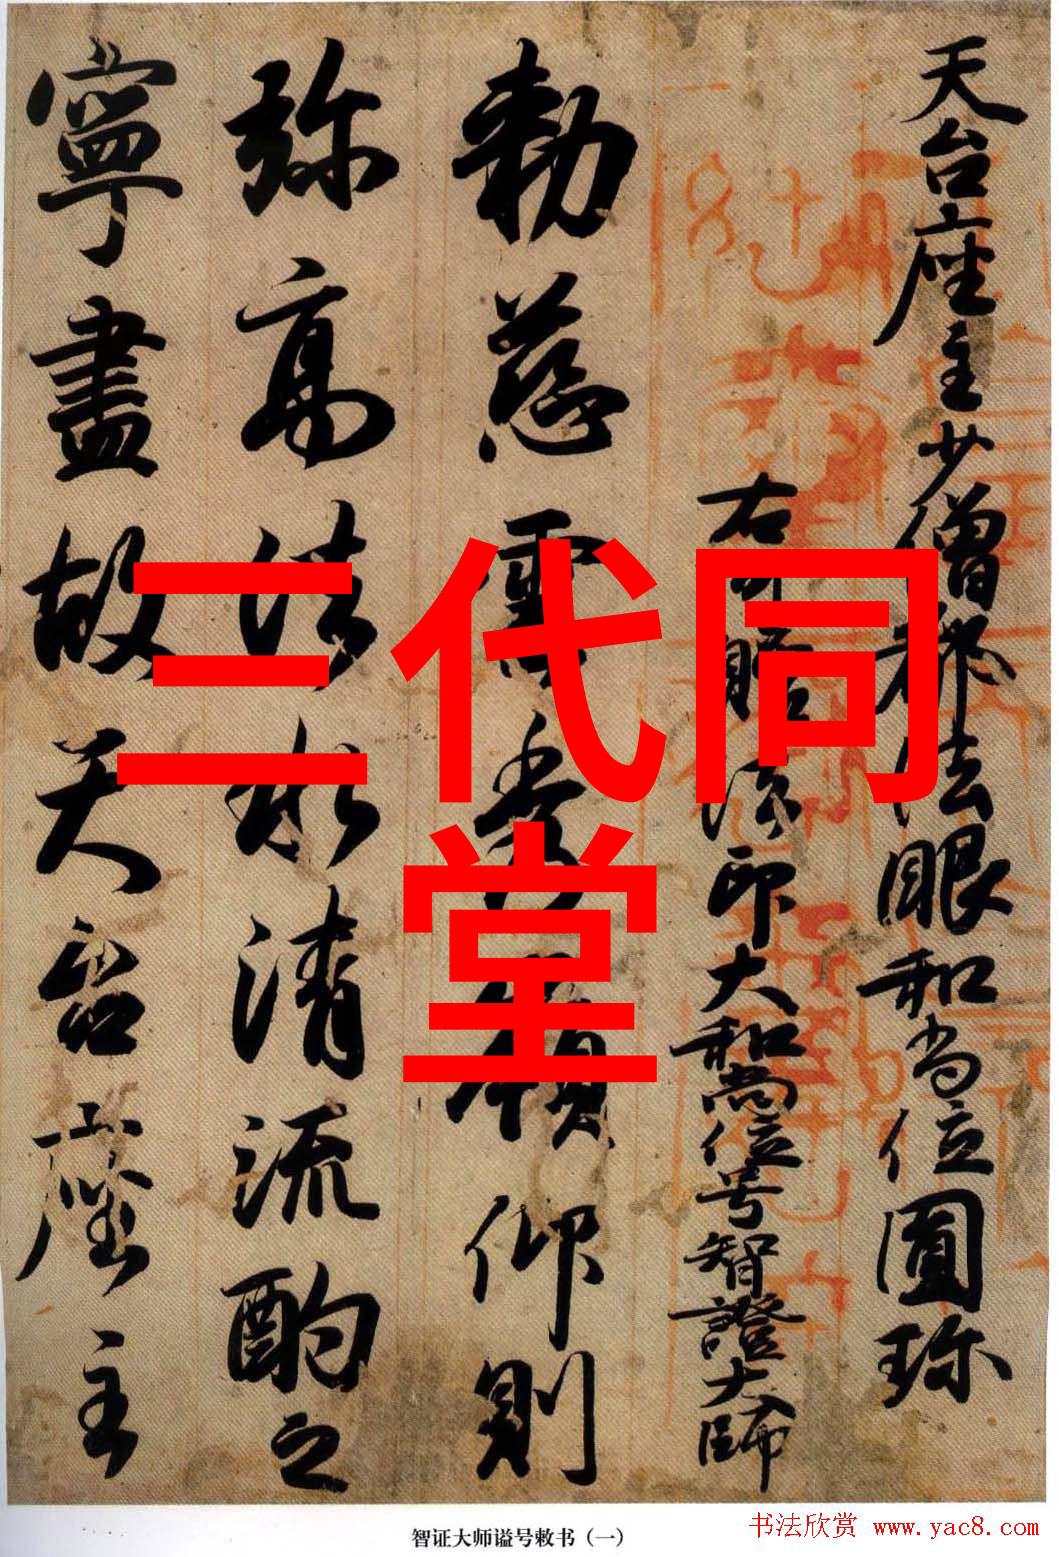 天台座主少僧都法眼和尚位圓珍
右可贈法印大和尚位号智證大師
勅慈雲秀嶺仰則
弥高法水清流酌之
寧盡故天台座主
三代同
堂
智证大师谥号敕书（一）
书法欣赏 www.yac8.com